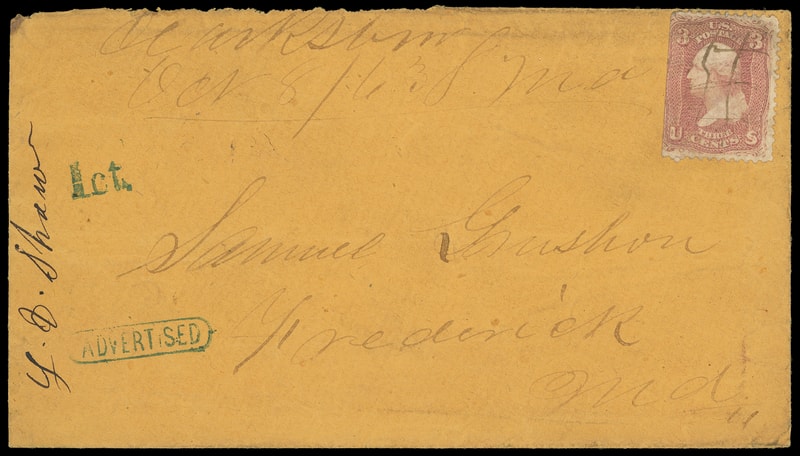 Clarksburg
Oct 8/63 Md
3 U.S. POSTAGE 3
U THREE CENTS S
1ct.
Samuel Grushon
Frederick
Md
ADVERTISED